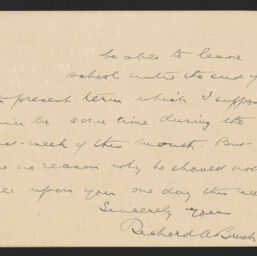 be able to leave
school until the end of
present term which I suppose
will be some time during the
week of this month. But
no reason why he should not
upon you one day this
Sincerely yours
Richard A Bush